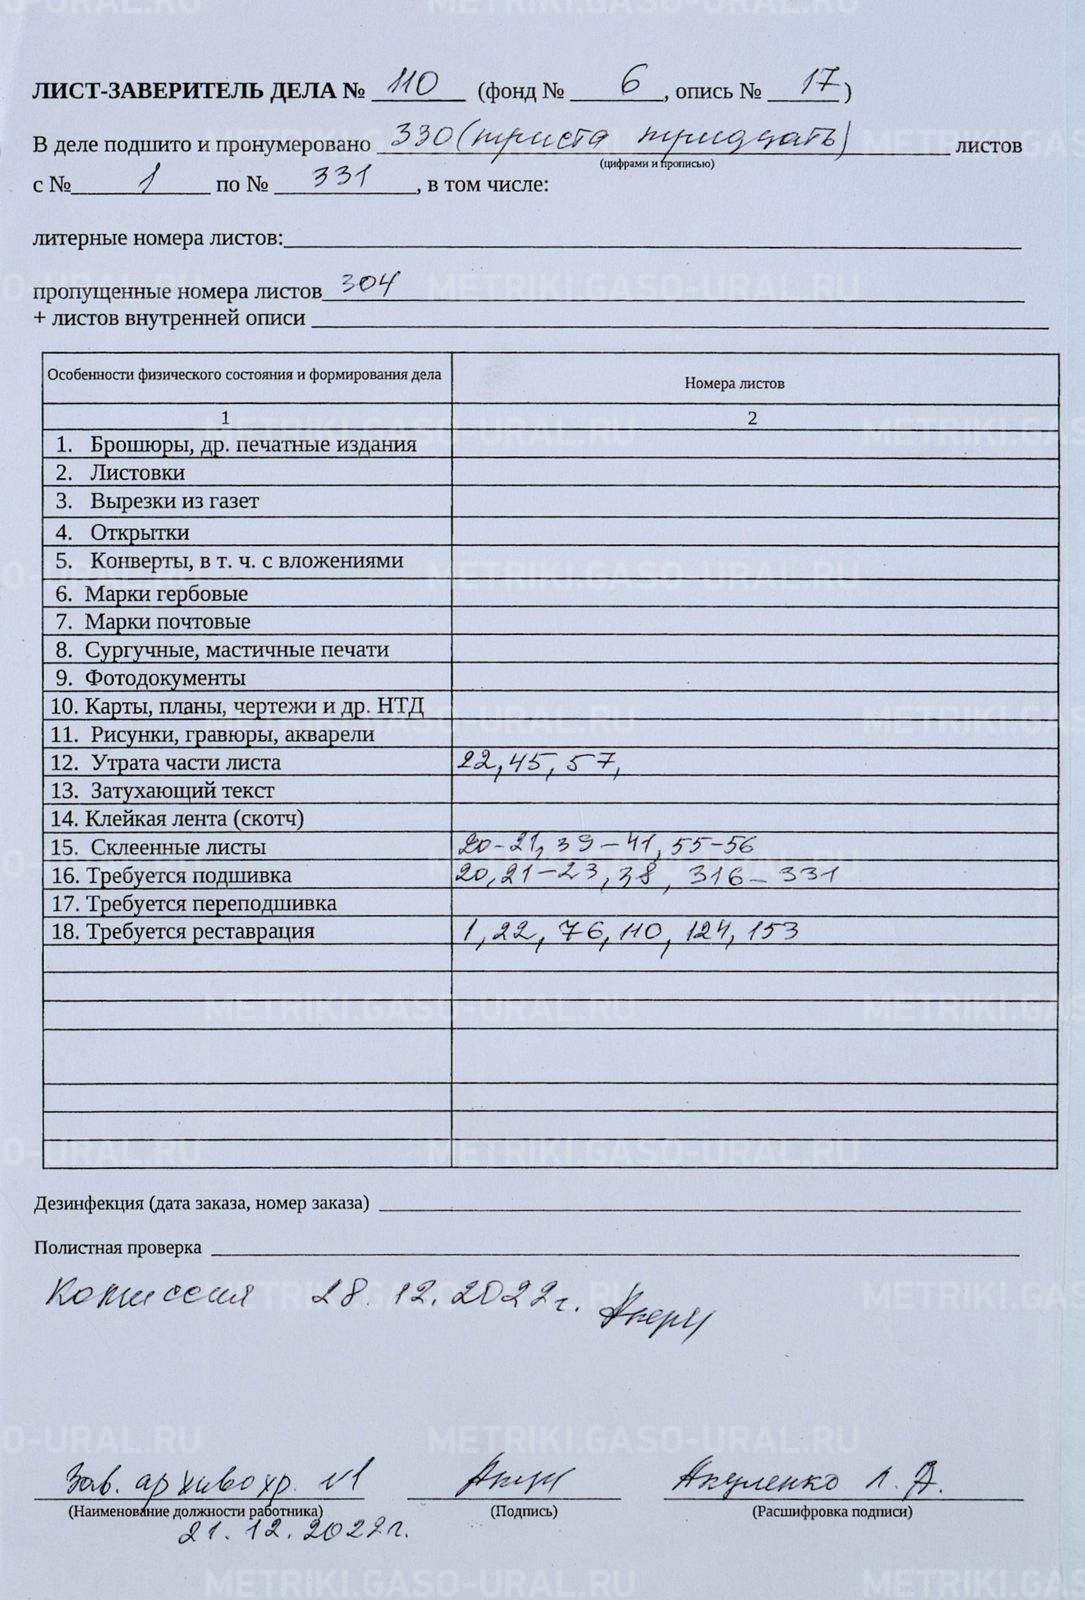 ЛИСТ-ЗАВЕРИТЕЛЬ ДЕЛА № 110 (фонд № 6, опись № 17)
В деле подшито и пронумеровано 330 (триста тридцать) листов
(цифрами и прописью)
с № 1 по № 331, в том числе:
литерные номера листов:
пропущенные номера листов 304
+ листов внутренней описи
Особенности физического состояния и формирования дела Номера листов
1 2
1. Брошюры, др. печатные издания
2. Листовки
3. Вырезки из газет
4. Открытки
5. Конверты, в т. ч. с вложениями
6. Марки гербовые
7. Марки почтовые
8. Сургучные, мастичные печати
9. Фотодокументы
10. Карты, планы, чертежи и др. НТД
11. Рисунки, гравюры, акварели
12. Утрата части листа 22, 45, 57,
13. Затухающий текст
14. Клейкая лента (скотч)
15. Склеенные листы 20-21, 39-41, 55-56
16. Требуется подшивка 20, 21-23, 38, 316-331
17. Требуется переподшивка
18. Требуется реставрация 1, 22, 76, 110, 124, 153
Дезинфекция (дата заказа, номер заказа)
Полистная проверка
Комиссия 28.12.2022г.
Зав. архивохр. №1 Акуленко Л. А.
(Наименование должности работника) (Подпись) (Расшифровка подписи)
21.12.2022г.
METRIKI.GASO-URAL.RU